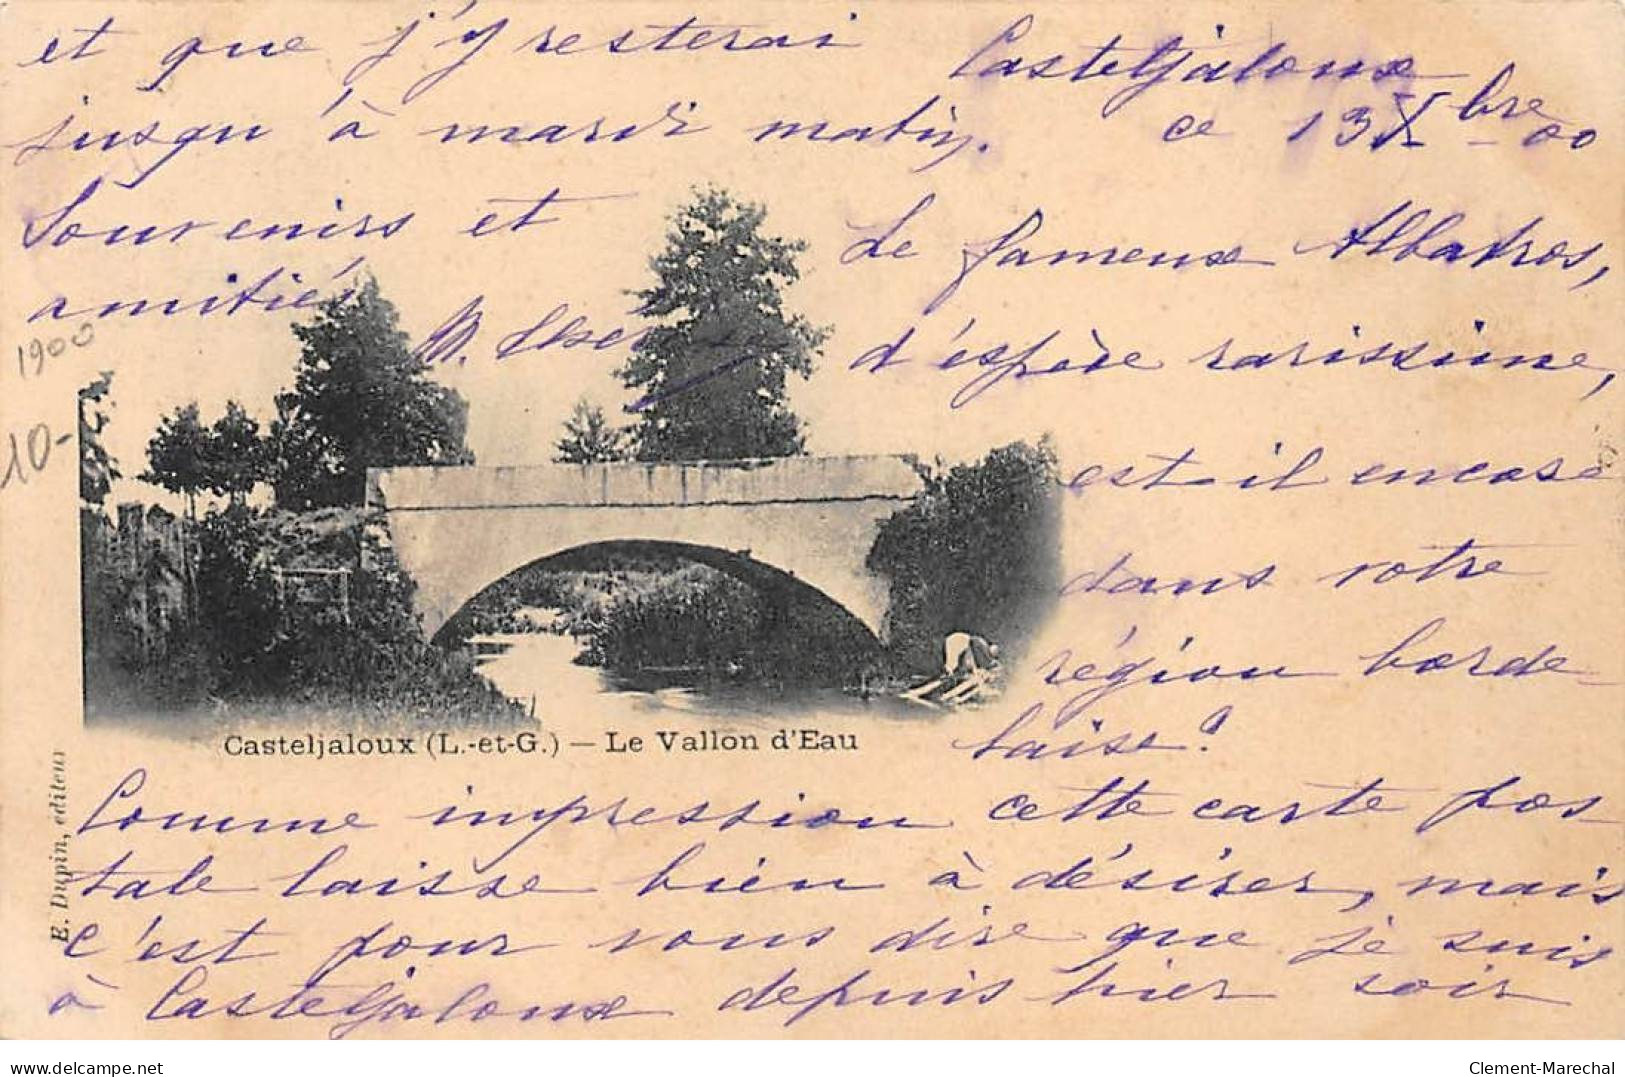 Casteljaloux
ce 13 Xbre 00
Le fameux Albatros,
d'espèce rarissime,
est-il encore
dans votre
région borde
laise ?
Comme impression cette carte pos
tale laisse bien à désirer, mais
c'est pour vous dire que je suis
à Casteljaloux depuis hier soir
et que j'y resterai
jusqu'à mardi matin.
Souvenirs et
amitiés
1900
10-
Casteljaloux (L.-et-G.) — Le Vallon d'Eau
E. Dupin, éditeur
delcampe.net
Clement-Marechal